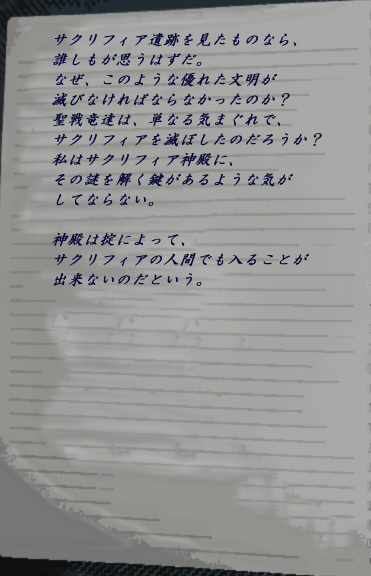 サクリフィア遺跡を見たものなら、
誰しもが思うはずだ。
なぜ、このような優れた文明が
滅びなければならなかったのか？
聖戦竜達は、単なる気まぐれで、
サクリフィアを滅ぼしたのだろうか？
私はサクリフィア神殿に、
その謎を解く鍵があるような気が
してならない。
神殿は掟によって、
サクリフィアの人間でも入ることが
出来ないのだという。